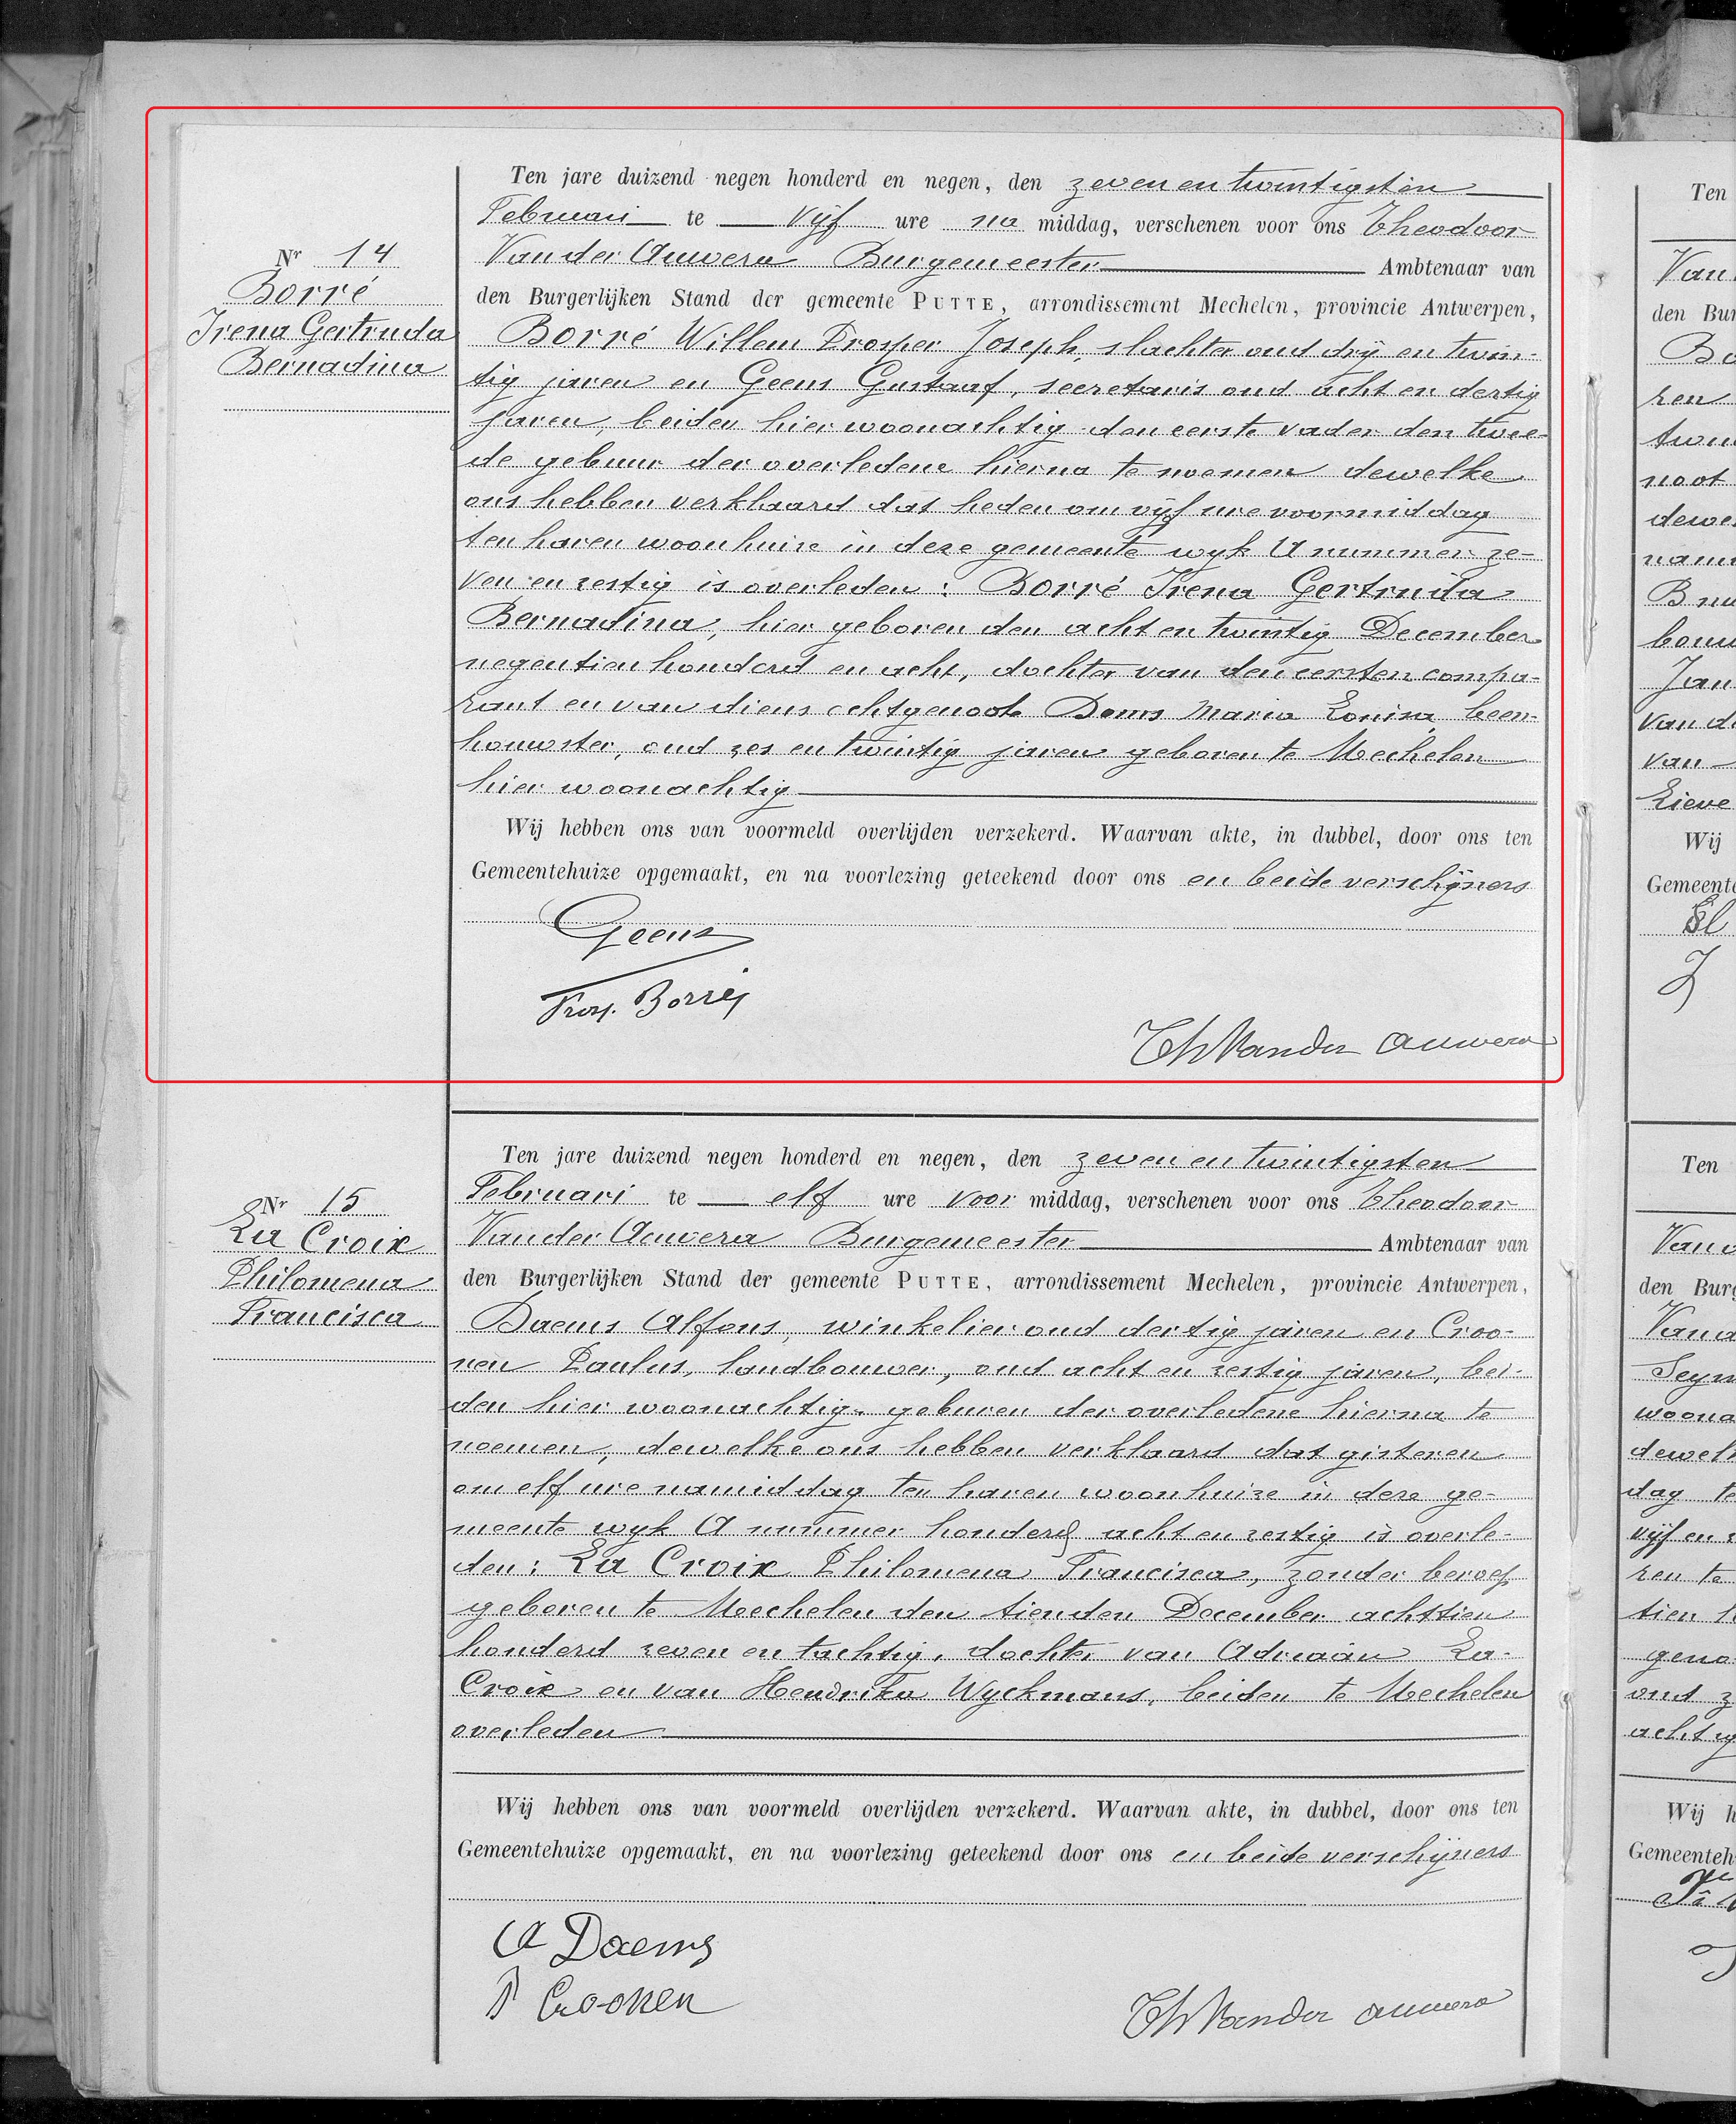 Nr 14
Borré
Irena Gertruda
Bernadina
Ten jare duizend negen honderd en negen, den zeven en twintigsten
Februari te vijf ure na middag, verschenen voor ons Theodoor
Van der Auwera Burgemeester Ambtenaar van
den Burgerlijken Stand der gemeente PUTTE, arrondissement Mechelen, provincie Antwerpen,
Borré Willem Prosper Joseph, slachter oud drij en twin-
tig jaren en Geens Gustaaf, secretaris oud acht en dertig
jaren, beiden hier woonachtig den eerste vader den twee-
de gebuur der overledene hierna te noemen dewelke
ons hebben verklaard dat heden om vijf ure voormiddag
ten haren woonhuize in deze gemeente wijk A nummer ze-
ven en zestig is overleden: Borré Irena Gertruida
Bernadina, hier geboren den acht en twintig December
negentien honderd en acht, dochter van den eersten compa-
rant en van diens echtgenoote Doms Maria Louisa, been-
houwster, oud zes en twintig jaren geboren te Mechelen
hier woonachtig
Wij hebben ons van voormeld overlijden verzekerd. Waarvan akte, in dubbel, door ons ten
Gemeentehuize opgemaakt, en na voorlezing geteekend door ons en beide verschijners
Geens
Pros. Borré
Th Vander Auwera
Nr 15
La Croix
Philomena
Francisca
Ten jare duizend negen honderd en negen, den zeven en twintigsten
Februari te elf ure voor middag, verschenen voor ons Theodoor
Van der Auwera Burgemeester Ambtenaar van
den Burgerlijken Stand der gemeente PUTTE, arrondissement Mechelen, provincie Antwerpen,
Daems Alfons, winkelier oud dertig jaren en Croo-
nen Paulus, landbouwer, oud acht en zestig jaren, bei-
den hier woonachtig, geburen der overledene hierna te
noemen, dewelke ons hebben verklaard dat gisteren
om elf ure namiddag ten haren woonhuize in deze ge-
meente wijk A nummer honderd acht en zestig is overle-
den: La Croix Philomena Francisca, zonder beroep
geboren te Mechelen den tienden December achttien
honderd zeven en tachtig, dochter van Adriaan La-
Croix en van Hendrika Wyckmans, beiden te Mechelen
overleden
Wij hebben ons van voormeld overlijden verzekerd. Waarvan akte, in dubbel, door ons ten
Gemeentehuize opgemaakt, en na voorlezing geteekend door ons en beide verschijners
A Daems
P Croonen
Th Vander Auwera
Ten
den Bur
ren
noot
dewe
van
Wij
Gemeente
Ten
den Burg
woona
dag te
vijf en
ren te
geno
oud z
Wij h
Gemeenteh